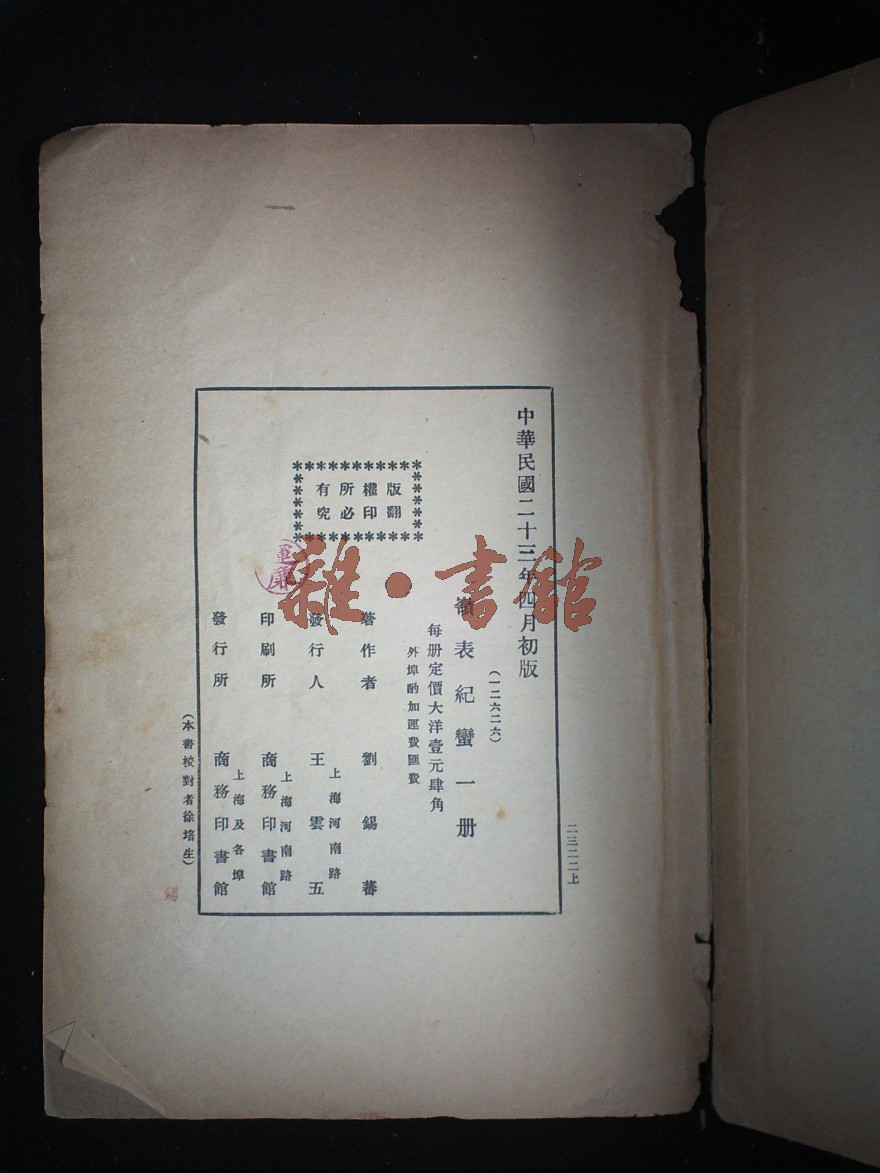 中華民國二十三年四月初版
(一二六二六)
嶺表紀蠻一册
每册定價大洋壹元肆角
外埠酌加運費匯費
版權所有
翻印必究
著作者 劉錫蕃
上海河南路
發行人 王雲五
上海河南路
印刷所 商務印書館
上海及各埠
發行所 商務印書館
(本書校對者徐培生)
二三二二上
雜·書館